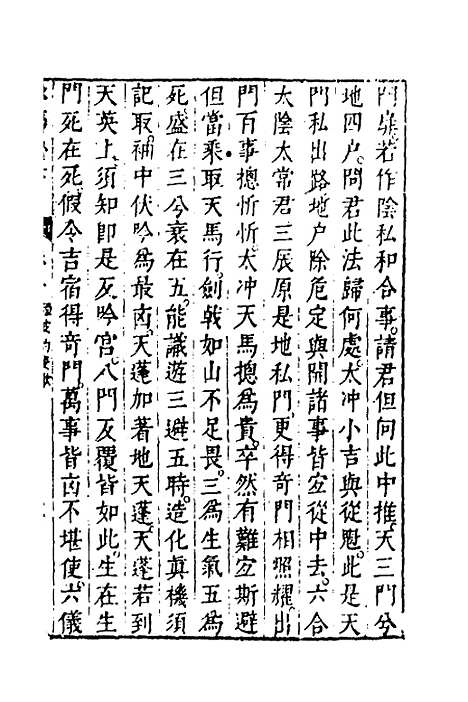 門扉若作陰私和合事請君但向此中推天三門兮
地四户問君此法歸何處太冲小吉與從魁此是天
門私出路地户除危定與開諸事皆宐從中去六合
太陰太常君三辰原是地私門更得奇門相照耀出
門百事摠忻忻太冲天馬摠為貴卒然有難宐斯避
但當乘取天馬行劍戟如山不足畏三為生氣五為
死盛在三兮衰在五能識遊三避五時造化眞機須
記取補中伏吟為最凶天蓬加著地天蓬天蓬若到
天英上須知即是反吟宫八門反覆皆如此生在生
門死在死假令吉宿得奇門萬事皆凶不堪使六儀